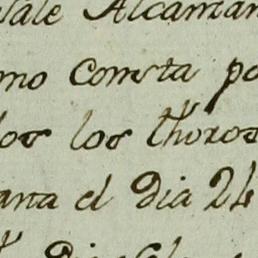 Vale Alcanzan
mo Consta po
los los thoros
ana el Dia 24